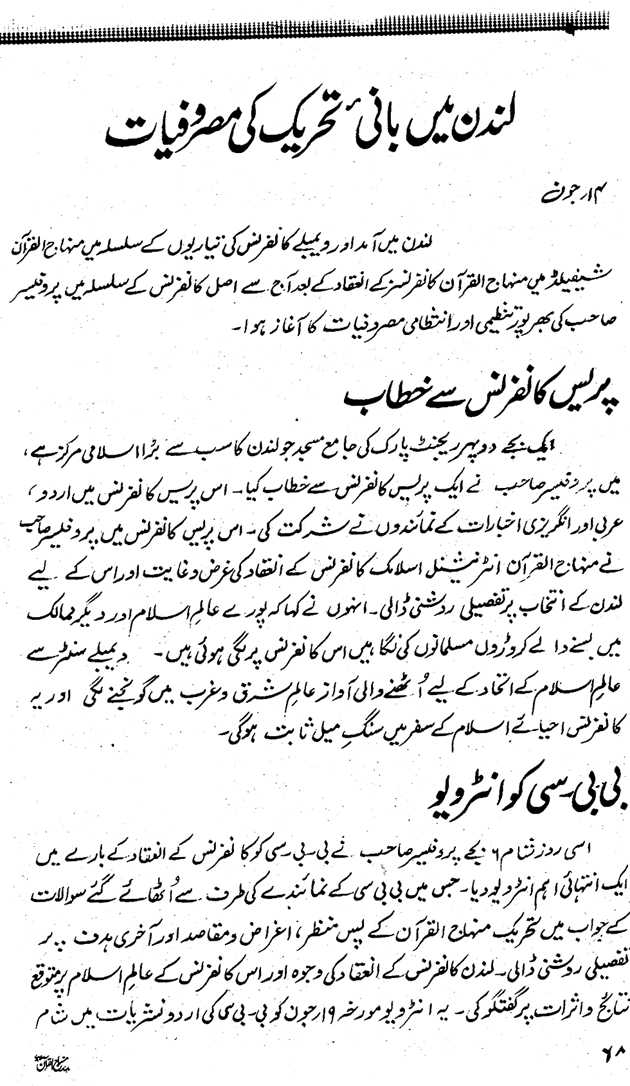 لندن میں بانیٔ تحریک کی مصروفیات
۱۴ جون
لندن میں آمد اور ویمبلے کانفرنس کی تیاریوں کے سلسلہ میں منہاج القرآن
شیفیلڈ میں منہاج القرآن کانفرنسز کے انعقاد کے بعد آج سے اصل کانفرنس کے سلسلہ میں پروفیسر
صاحب کی بھرپور تنظیمی اور انتظامی مصروفیات کا آغاز ہوا۔
پریس کانفرنس سے خطاب
ایک بجے دوپہر ریجنٹ پارک کی جامع مسجد جو لندن کا سب سے بڑا اسلامی مرکز ہے،
میں پروفیسر صاحب نے ایک پریس کانفرنس سے خطاب کیا۔ اس پریس کانفرنس میں اردو،
عربی اور انگریزی اخبارات کے نمائندوں نے شرکت کی۔ اس پریس کانفرنس میں پروفیسر صاحب
نے منہاج القرآن انٹرنیشنل اسلامک کانفرنس کے انعقاد کی غرض و غایت اور اس کے لیے
لندن کے انتخاب پر تفصیلی روشنی ڈالی۔ انہوں نے کہا کہ پورے عالم اسلام اور دیگر ممالک
میں بسنے والے کروڑوں مسلمانوں کی نگاہیں اس کانفرنس پر لگی ہوئی ہیں۔ ویمبلے سنٹر سے
عالمِ اسلام کے اتحاد کے لیے اُٹھنے والی آواز عالمِ شرق و غرب میں گونجنے لگی اور یہ
کانفرنس احیائے اسلام کے سفر میں سنگِ میل ثابت ہوگی۔
بی بی سی کو انٹرویو
اسی روز شام ۶ بجے پروفیسر صاحب نے بی۔بی۔سی کو کانفرنس کے انعقاد کے بارے میں
ایک انتہائی اہم انٹرویو دیا۔ جس میں بی بی سی کے نمائندے کی طرف سے اُٹھائے گئے سوالات
کے جواب میں تحریک منہاج القرآن کے پس منظر، اغراض و مقاصد اور آخری ہدف پر
تفصیلی روشنی ڈالی۔ لندن کانفرنس کے انعقاد کی وجوہ اور اس کانفرنس کے عالم اسلام پر متوقع
نتائج و اثرات پر گفتگو کی۔ یہ انٹرویو مورخہ ۱۹ جون کو بی۔بی۔سی کی اردو نشریات میں شام
۶۸
منہاج القرآن